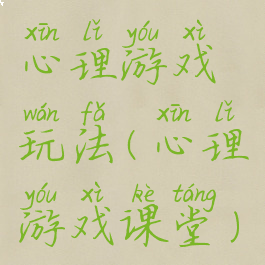 xīn lǐ yóu xì
心理游戏
wán fǎ ( xīn lǐ
玩法(心理
yóu xì kè táng
游戏课堂)